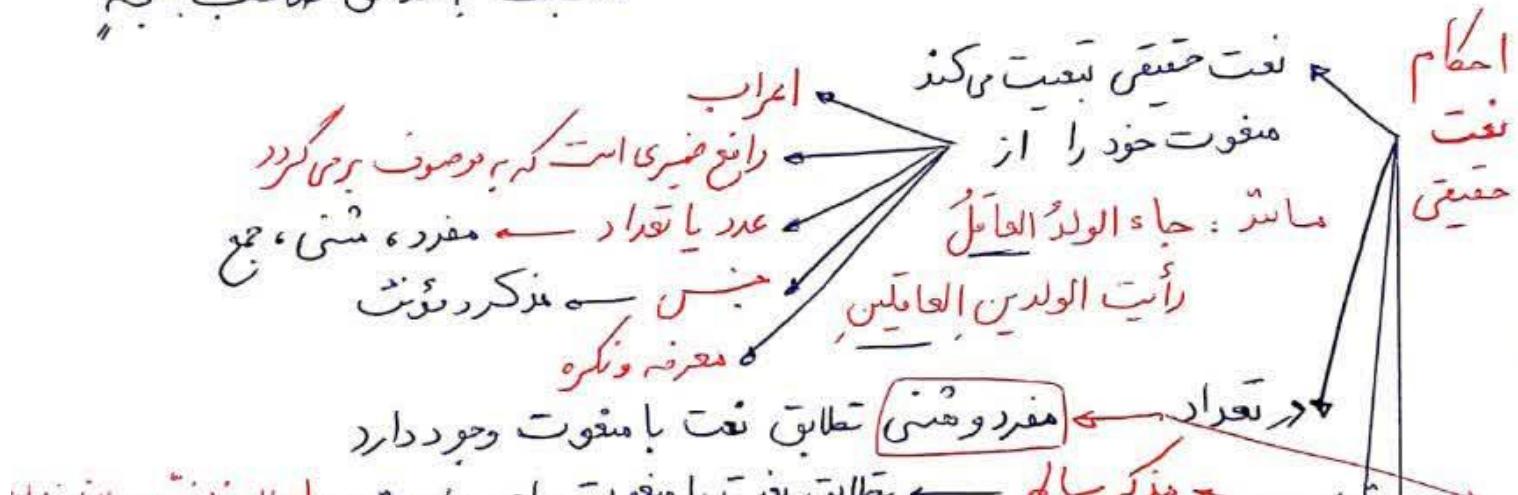 احکام نعت حقیقی
نعت حقیقی تبعیت می‌کند
منعوت خود را از
اعراب
رافع ضمیری است که به موصوف برمی‌گردد
عدد یا تعداد ← مفرد، مثنی، جمع
جنس ← مذکر و مؤنث
معرفه و نکره
مانند: جاء الولدُ العاقلُ
رأیت الولدینِ العاقلینِ
در تعداد ← مفرد و مثنی تطابق نعت با منعوت وجود دارد
مذکر سالم ← تطابق نعت با منعوت